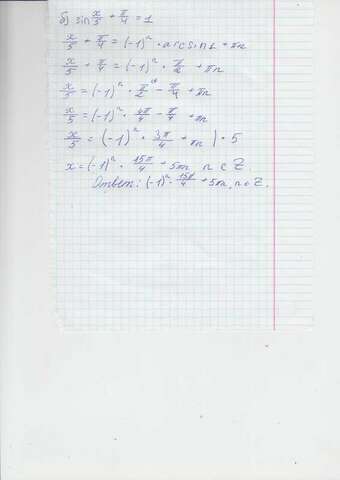 б) sin x/5 + π/4 = 1
x/5 + π/4 = (-1)ⁿ · arcsin 1 + πn
x/5 + π/4 = (-1)ⁿ · π/2 + πn
x/5 = (-1)ⁿ · π/2 - π/4 + πn
x/5 = (-1)ⁿ · 4π/4 - π/4 + πn
x/5 = (-1)ⁿ · 3π/4 + πn ) · 5
x = (-1)ⁿ · 15π/4 + 5πn n ∈ Z.
Ответ: (-1)ⁿ · 15π/4 + 5πn, n ∈ Z.